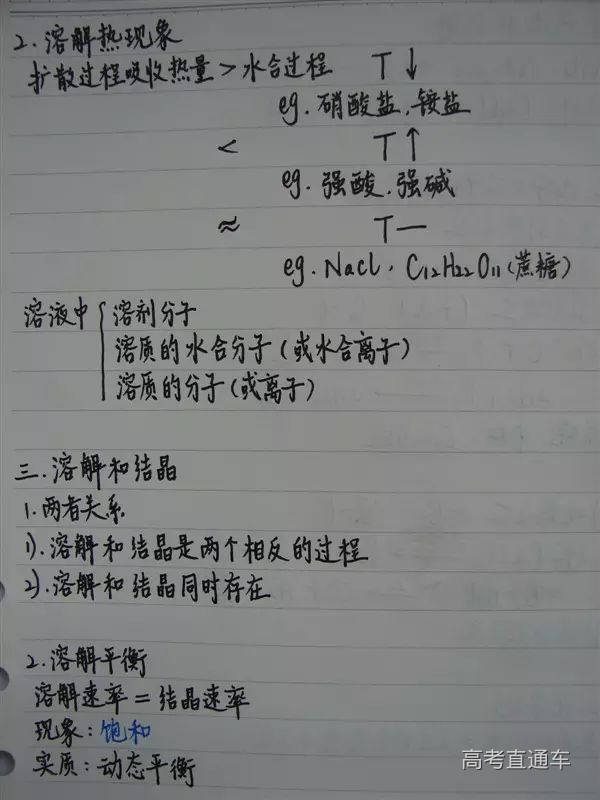 2.溶解热现象
扩散过程吸收热量>水合过程 T↓
eg.硝酸盐、铵盐
< T↑
eg.强酸、强碱
≈ T—
eg.NaCl、C12H22O11(蔗糖)
溶液中{溶剂分子
溶质的水合分子(或水合离子)
溶质的分子(或离子)
三.溶解和结晶
1.两者关系
1).溶解和结晶是两个相反的过程
2).溶解和结晶同时存在
2.溶解平衡
溶解速率=结晶速率
现象:饱和
实质:动态平衡
高考直通车